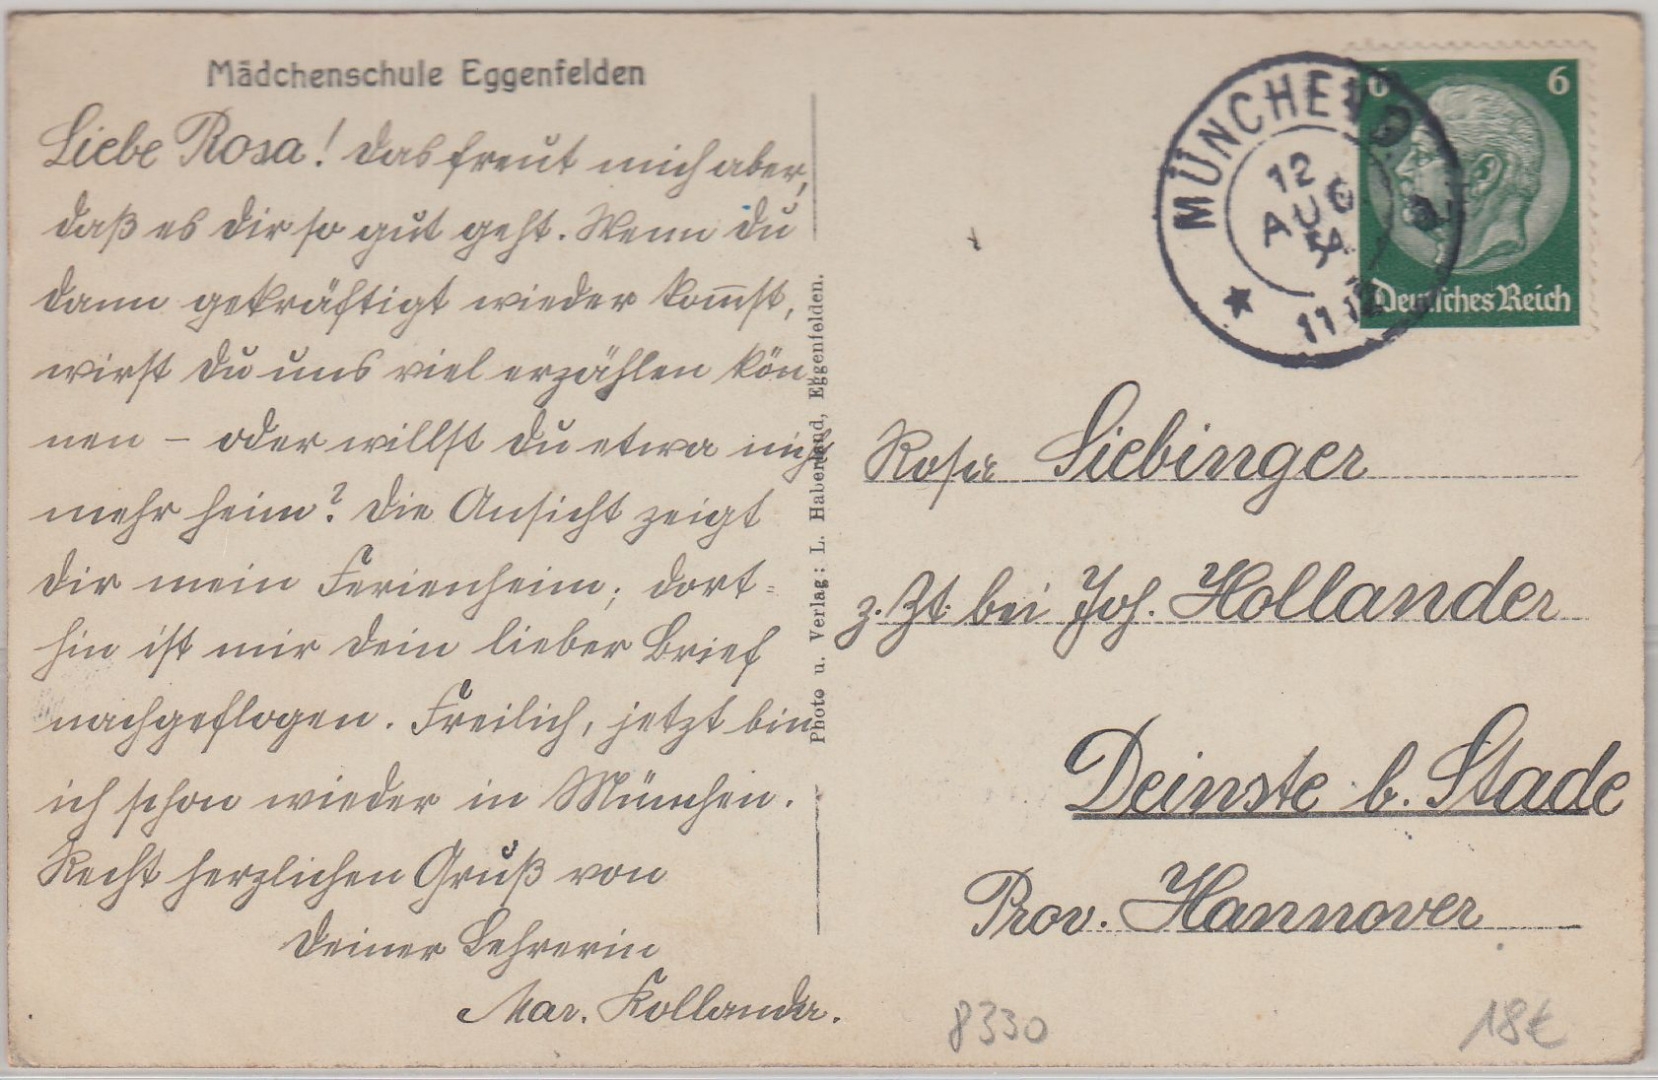 Mädchenschule Eggenfelden
Liebe Rosa! Das freut mich aber,
daß es Dir so gut geht. Wenn Du
dann gekräftigt wieder kommst,
wirst Du uns viel erzählen kön
nen – oder willst Du etwa nicht
mehr heim? Die Ansicht zeigt
Dir mein Ferienheim; dort=
hin ist mir Dein lieber Brief
nachgeflogen. Freilich, jetzt bin
ich schon wieder in München.
Recht herzlichen Gruß von
Deiner Lehrerin
Mar. Kollander.
Photo u. Verlag: L. Haberland, Eggenfelden.
MÜNCHEN
12
AUG
34
11 12
6 6
Deutsches Reich
Rosa Siebinger
z. Zt. bei Joh. Hollander
Deinste b. Stade
Prov. Hannover
8330
18€